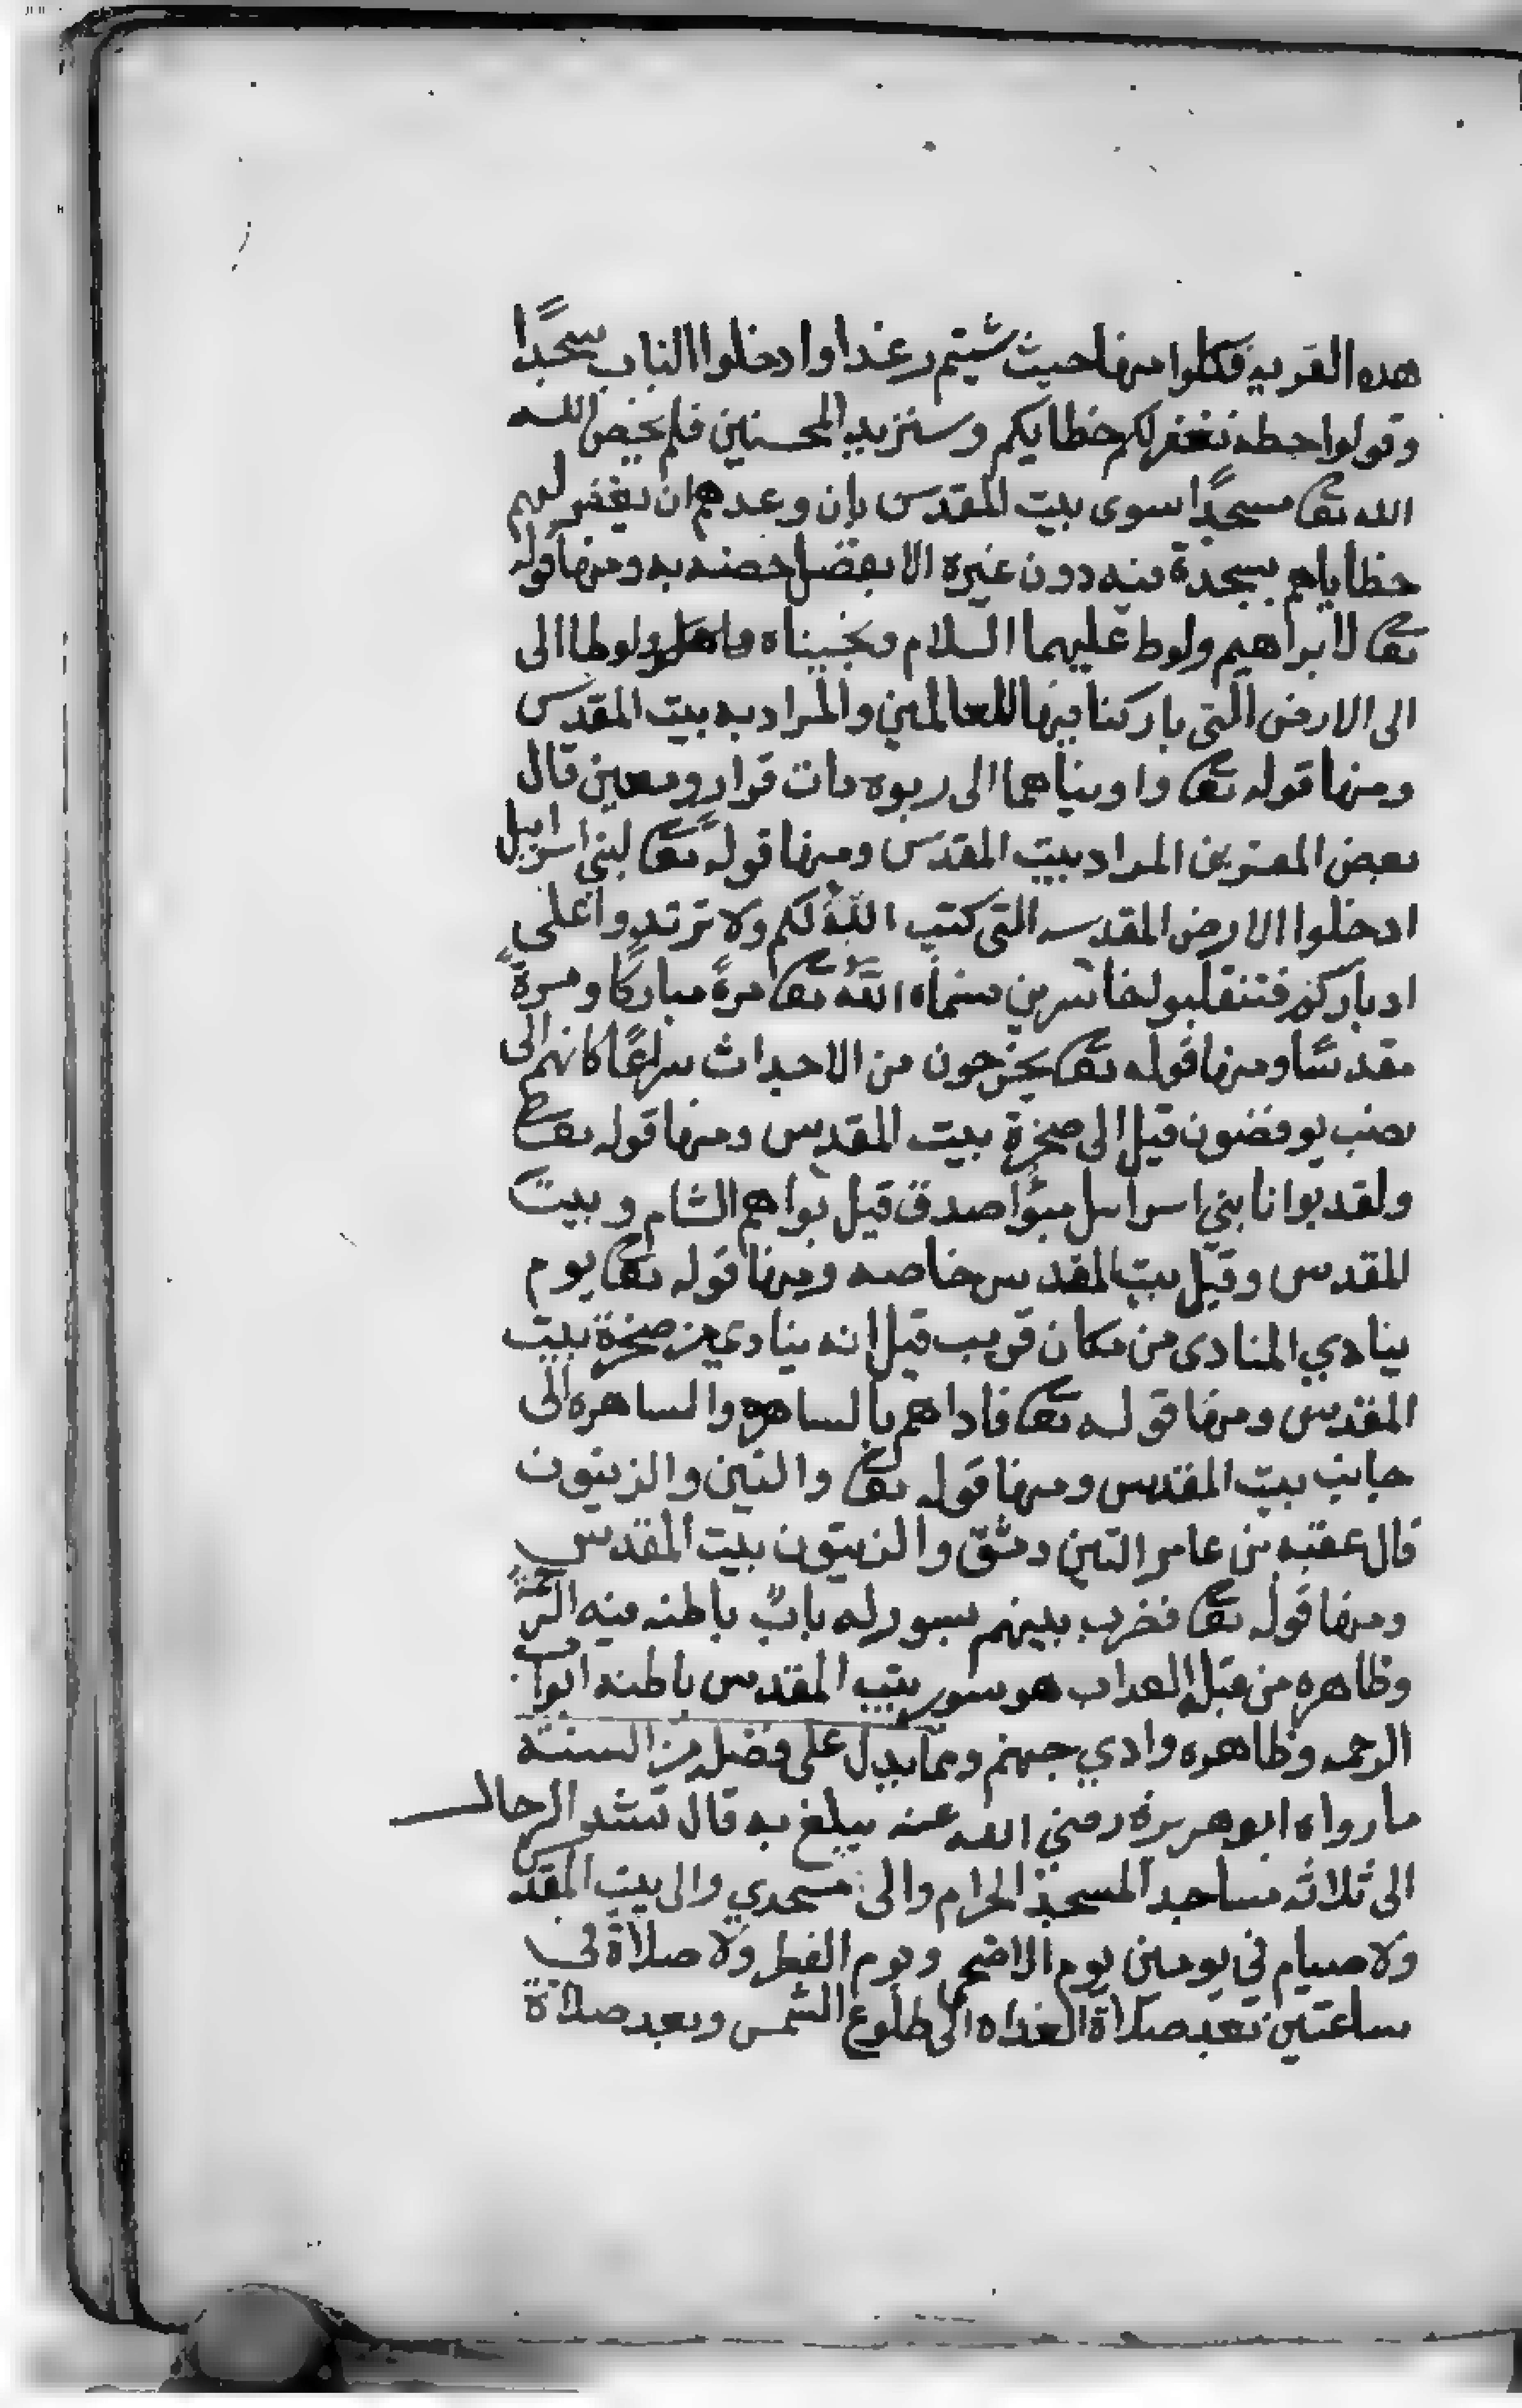 هده القريه فكلوا منها حيث شيتم رغدا وادخلوا الباب سجدًا
وقولوا حطه نغفر لكم خطايكم وسنزيد المحسنين فلم يخص الله
الله تعا مسجدًا سوى بيت المقدس بان وعدهم ان يغفر لهم
خطاياهم بسجدة فيه دون غيره الا بفضل خصه به ومنها قوله
تعا لابراهيم ولوط عليهما السلام ونجيناه ولوطا الى
الى الارض التي باركنا فيها للعالمين والمراد به بيت المقدس
ومنها قوله تعا واويناهما الى ربوه دات قرار ومعين قال
بعض المفسرين المراد بيت المقدس ومنها قوله تعا لبني اسرايل
ادخلوا الارض المقدسه التي كتب الله لكم ولا ترتدوا على
ادباركم فتنقلبوا خاسرين سماه الله تعا مرةً مباركًا ومرةً
مقدسًا ومنها قوله تعا يخرجون من الاجداث سراعًا كانهم الى
نصب يوفضون قيل الى صخرة بيت المقدس ومنها قوله تعا
ولقد بوانا بني اسرايل مبوأ صدق قيل بواهم الشام وبيت
المقدس وقيل بيت المقدس خاصه ومنها قوله تعا يوم
ينادي المنادى من مكان قريب قيل انه ينادي من صخرة بيت
المقدس ومنها قوله تعا فاداهم بالساهره والساهره الى
جانب بيت المقدس ومنها قوله تعا والتين والزيتون
قال عقبه بن عامر التين دمشق والزيتون بيت المقدس
ومنها قوله تعا فضرب بينهم بسور له بابٌ باطنه فيه الرحمة
وظاهره من قبله العداب هو سور بيت المقدس باطنه ابواب
الرحمه وظاهره وادي جهنم ومما يدل على فضله من السنه
ما رواه ابو هريرة رضي الله عنه يبلغ به قال تشد الرحال
الى ثلاثه مساجد المسجد الحرام والى مسجدي والى بيت المقدس
ولا صيام في يومين يوم الاضحى ويوم الفطر ولا صلاة في
ساعتين بعد صلاة الغداه الى طلوع الشمس وبعد صلاة